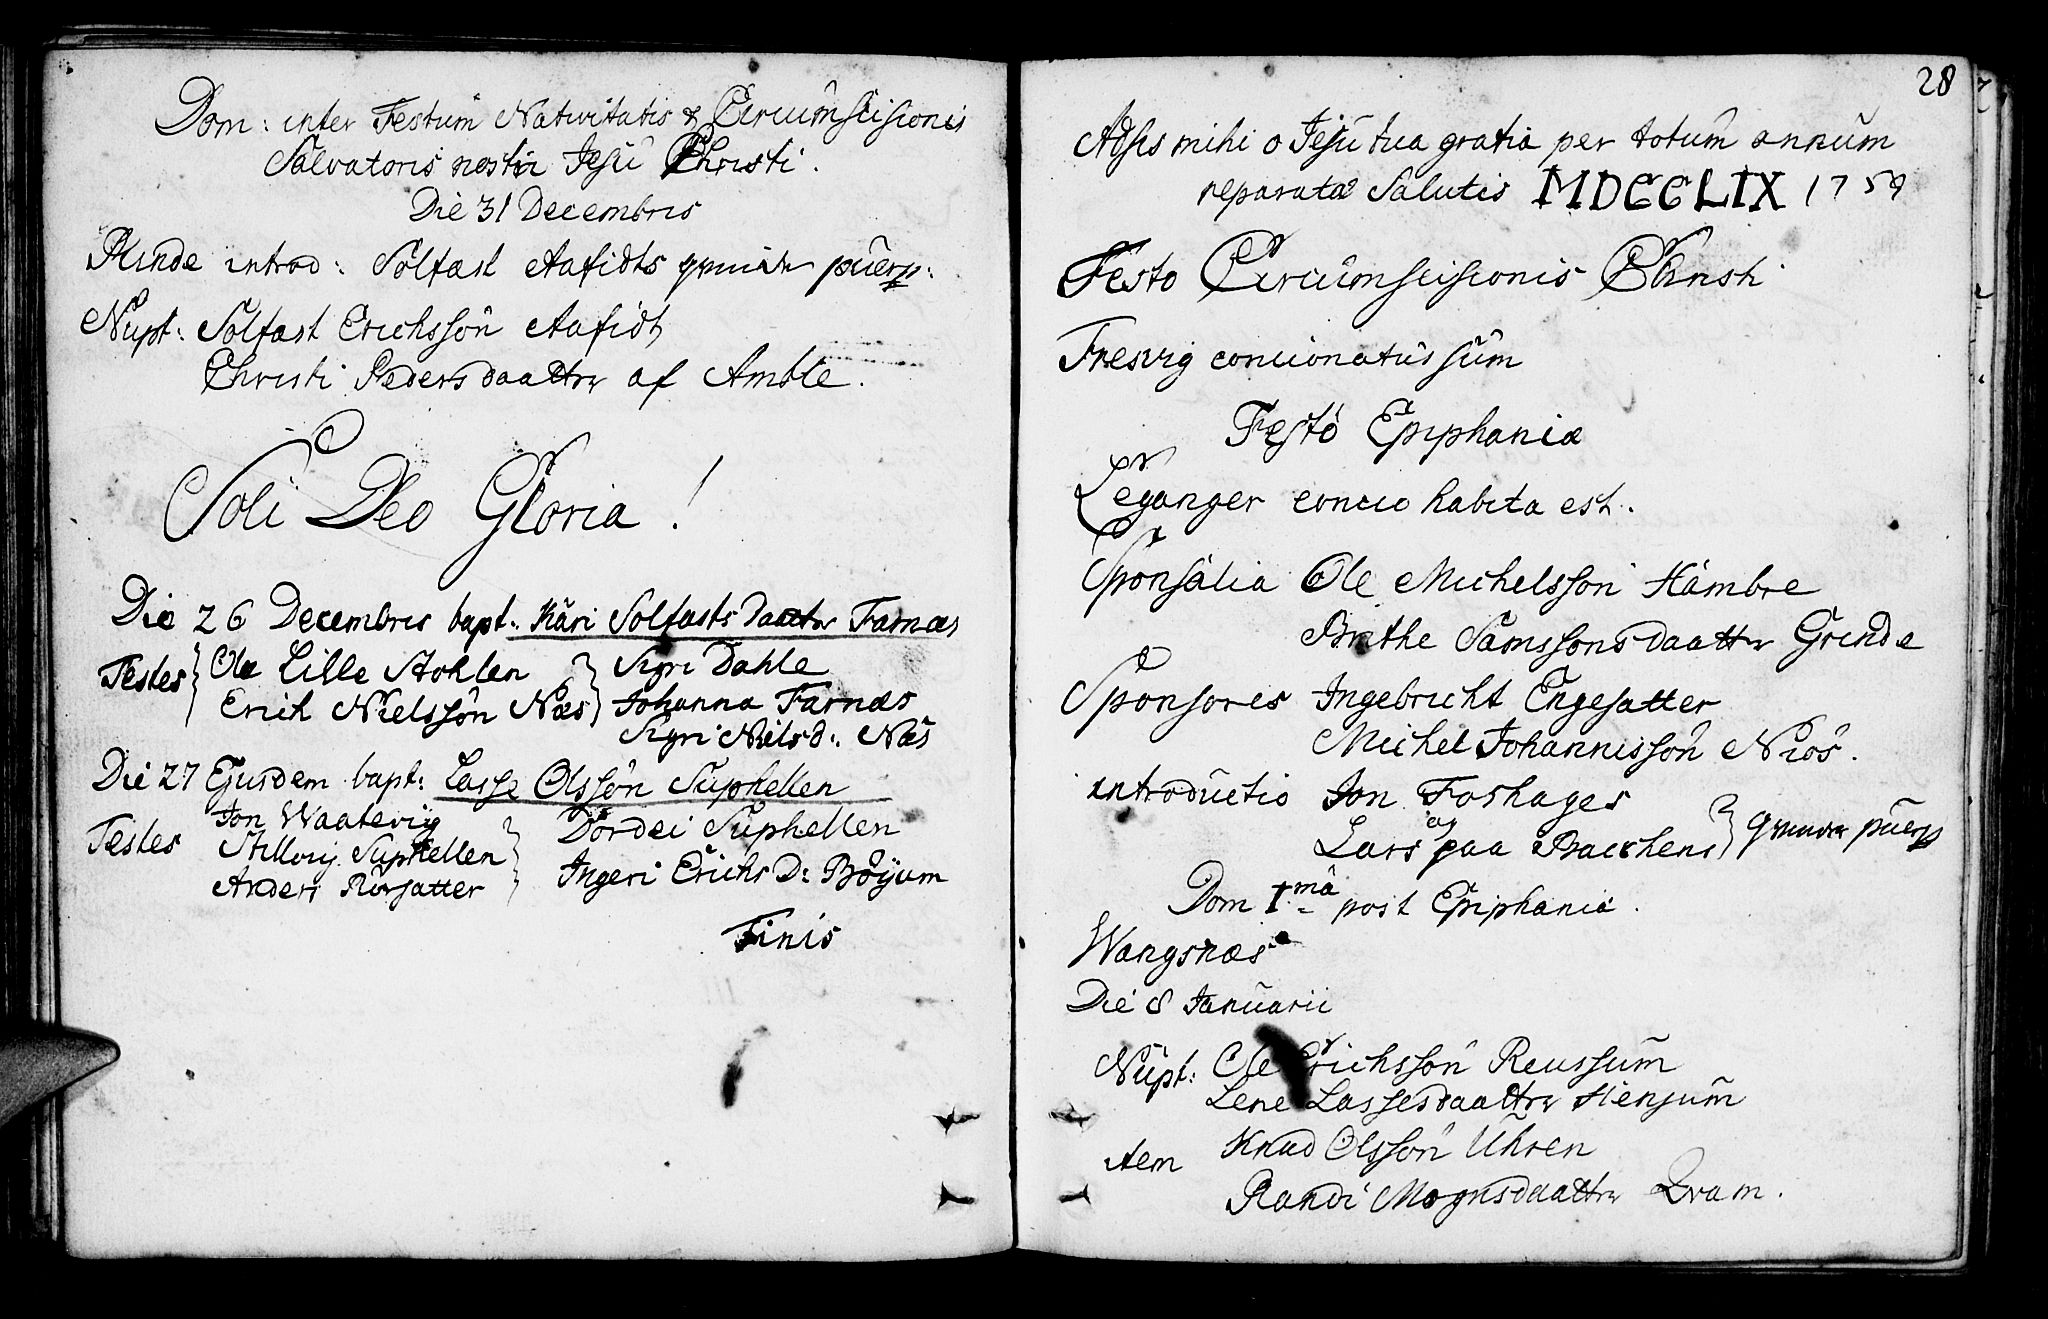 Dom: inter Festum Nativitatis & Circumscisionis
Salvatoris nostri Jesu Christi.
Die 31 Decembris
Rinde introd: Solfast Aafidts qvinde puerp:
Nupt: Solfast Erichssön Aafidt
Christi Pedersdaatter af Amble.
Soli Deo Gloria!
Die 26 Decembris bapt: Kari Solfastsdaatter Farnæs
Testes Ole Lille Stohlen
Erich Nielssön Næs
Sigri Dahle
Johanna Farnæs
Sigri Nielsd: Næs
Die 27 Ejusdem bapt: Lasse Olssön Suphellen
Testes Jon Waatevig
Suphellen
Anders Rörsatter
Dordei Suphellen
Ingeri Erichs D: Böyum
Finis
28
Adsis mihi o Jesu tua gratia per totum annum
reparatæ Salutis MDCCLIX 1759
Festo Circumscisionis Christi
Fresvig concionatus sum
Festo Epiphaniæ
Leganger concio habita est.
Sponsalia Ole Michelsson Hambre
Brithe Samssons daatter Grinde
Sponsores Ingebricht Engesatter
Michel Johannissön Niös.
introductio Jon Foshages
og
Lars paa Backens qvinder puerp
Dom 1ma post Epiphania.
Wangsnæs
Die 8 Januarii
Nupt: Ole Erichsson Reussum
Lene Lassesdaatter Hiensum
item Knud Olsson Uhren
Randi Mognsdaatter Qvam.